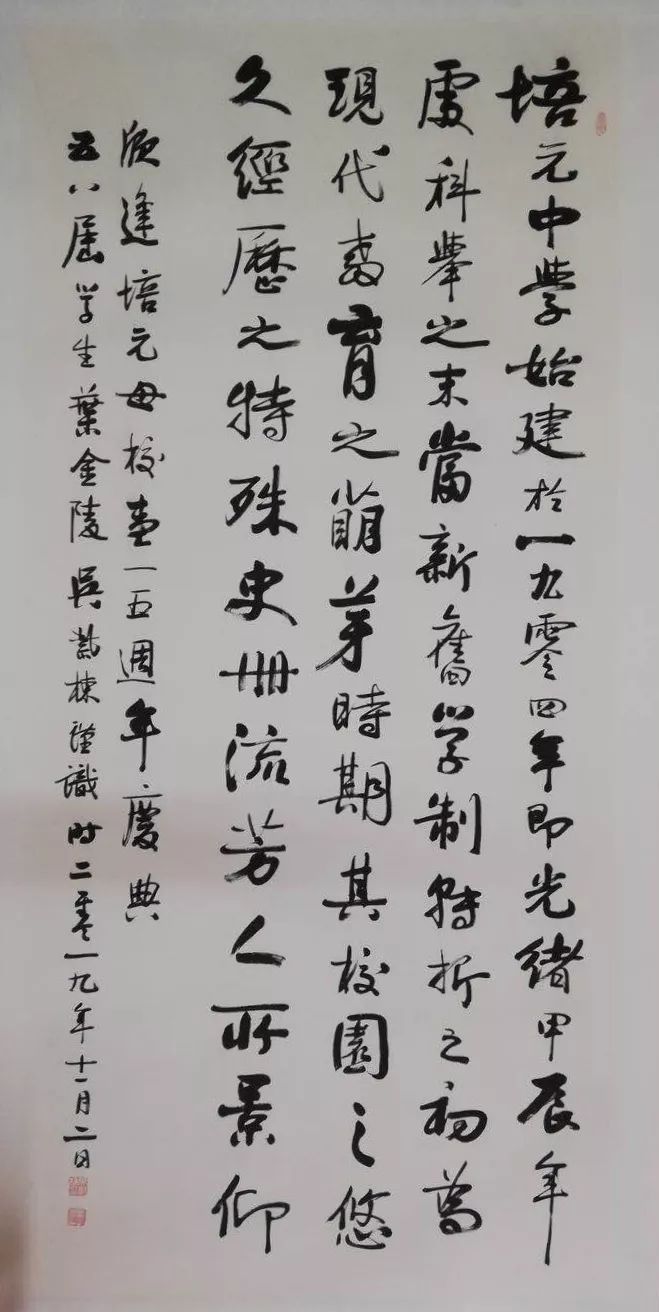 培元中學始建於一九零四年即光緒甲辰年
處科舉之末當新舊学制轉折之初為
現代教育之萠芽時期其校園之悠
久經歷之特殊史册流芳人所景仰
欣逢培元母校壹一五週年慶典
五八届学生葉金陵吳懿棟謹識时二零一九年十一月二日